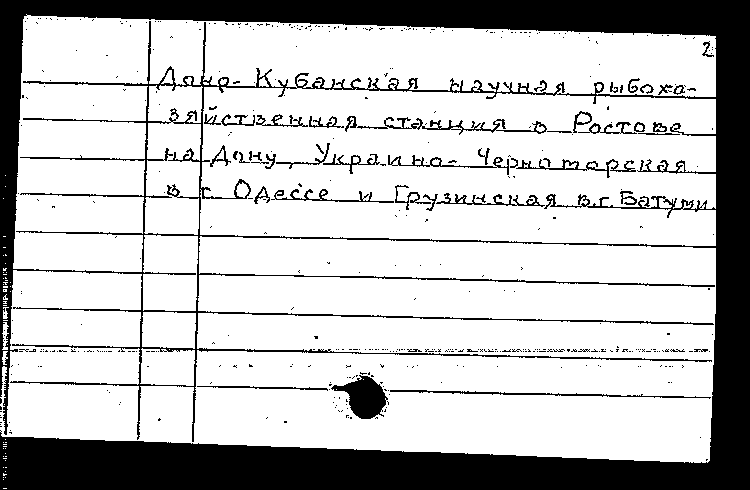 2
Доно-Кубанская научная рыбохо-
зяйственная станция в Ростове
на Дону, Украино-Черноморская
в г. Одессе и Грузинская в.г. Батуми